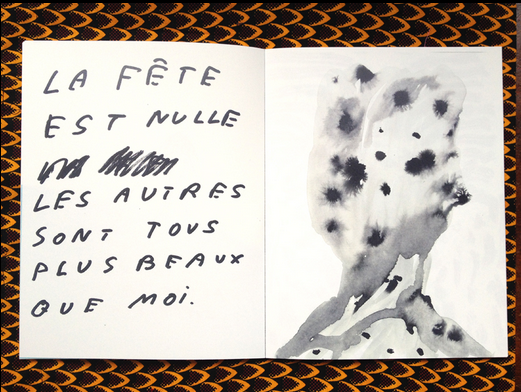 LA FÊTE
EST NULLE
LES AUTRES
SONT TOUS
PLUS BEAUX
QUE MOI.